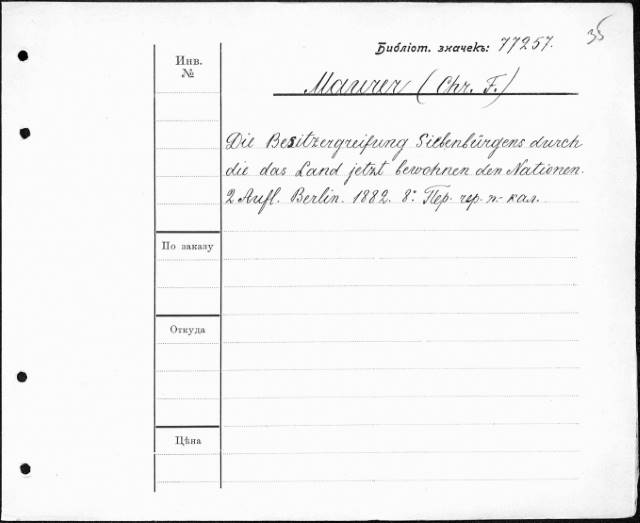 35
Библіот. значекъ: 77257.
Инв.
№
Maurer (Chr. F.)
Die Besitzergreifung Siebenbürgens durch
die das Land jetzt bewohnen den Nationen.
2 Aufl. Berlin. 1882. 8º. Пер. чер. п.-кал.
По заказу
Откуда
Цѣна